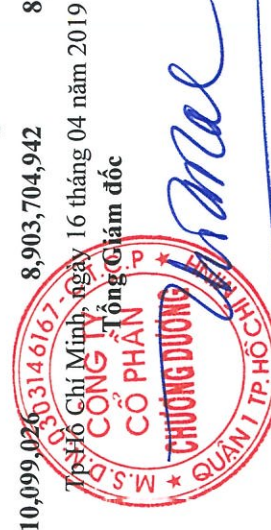 10,099,026 8,903,704,942 8
Tp Hồ Chí Minh, ngày 16 tháng 04 năm 2019
Tổng Giám đốc
M.S.D.N: 0303146167 - C.T.C.P
CÔNG TY
CỔ PHẦN
CHƯƠNG DƯƠNG
QUẬN 1 TP. HỒ CHÍ MINH